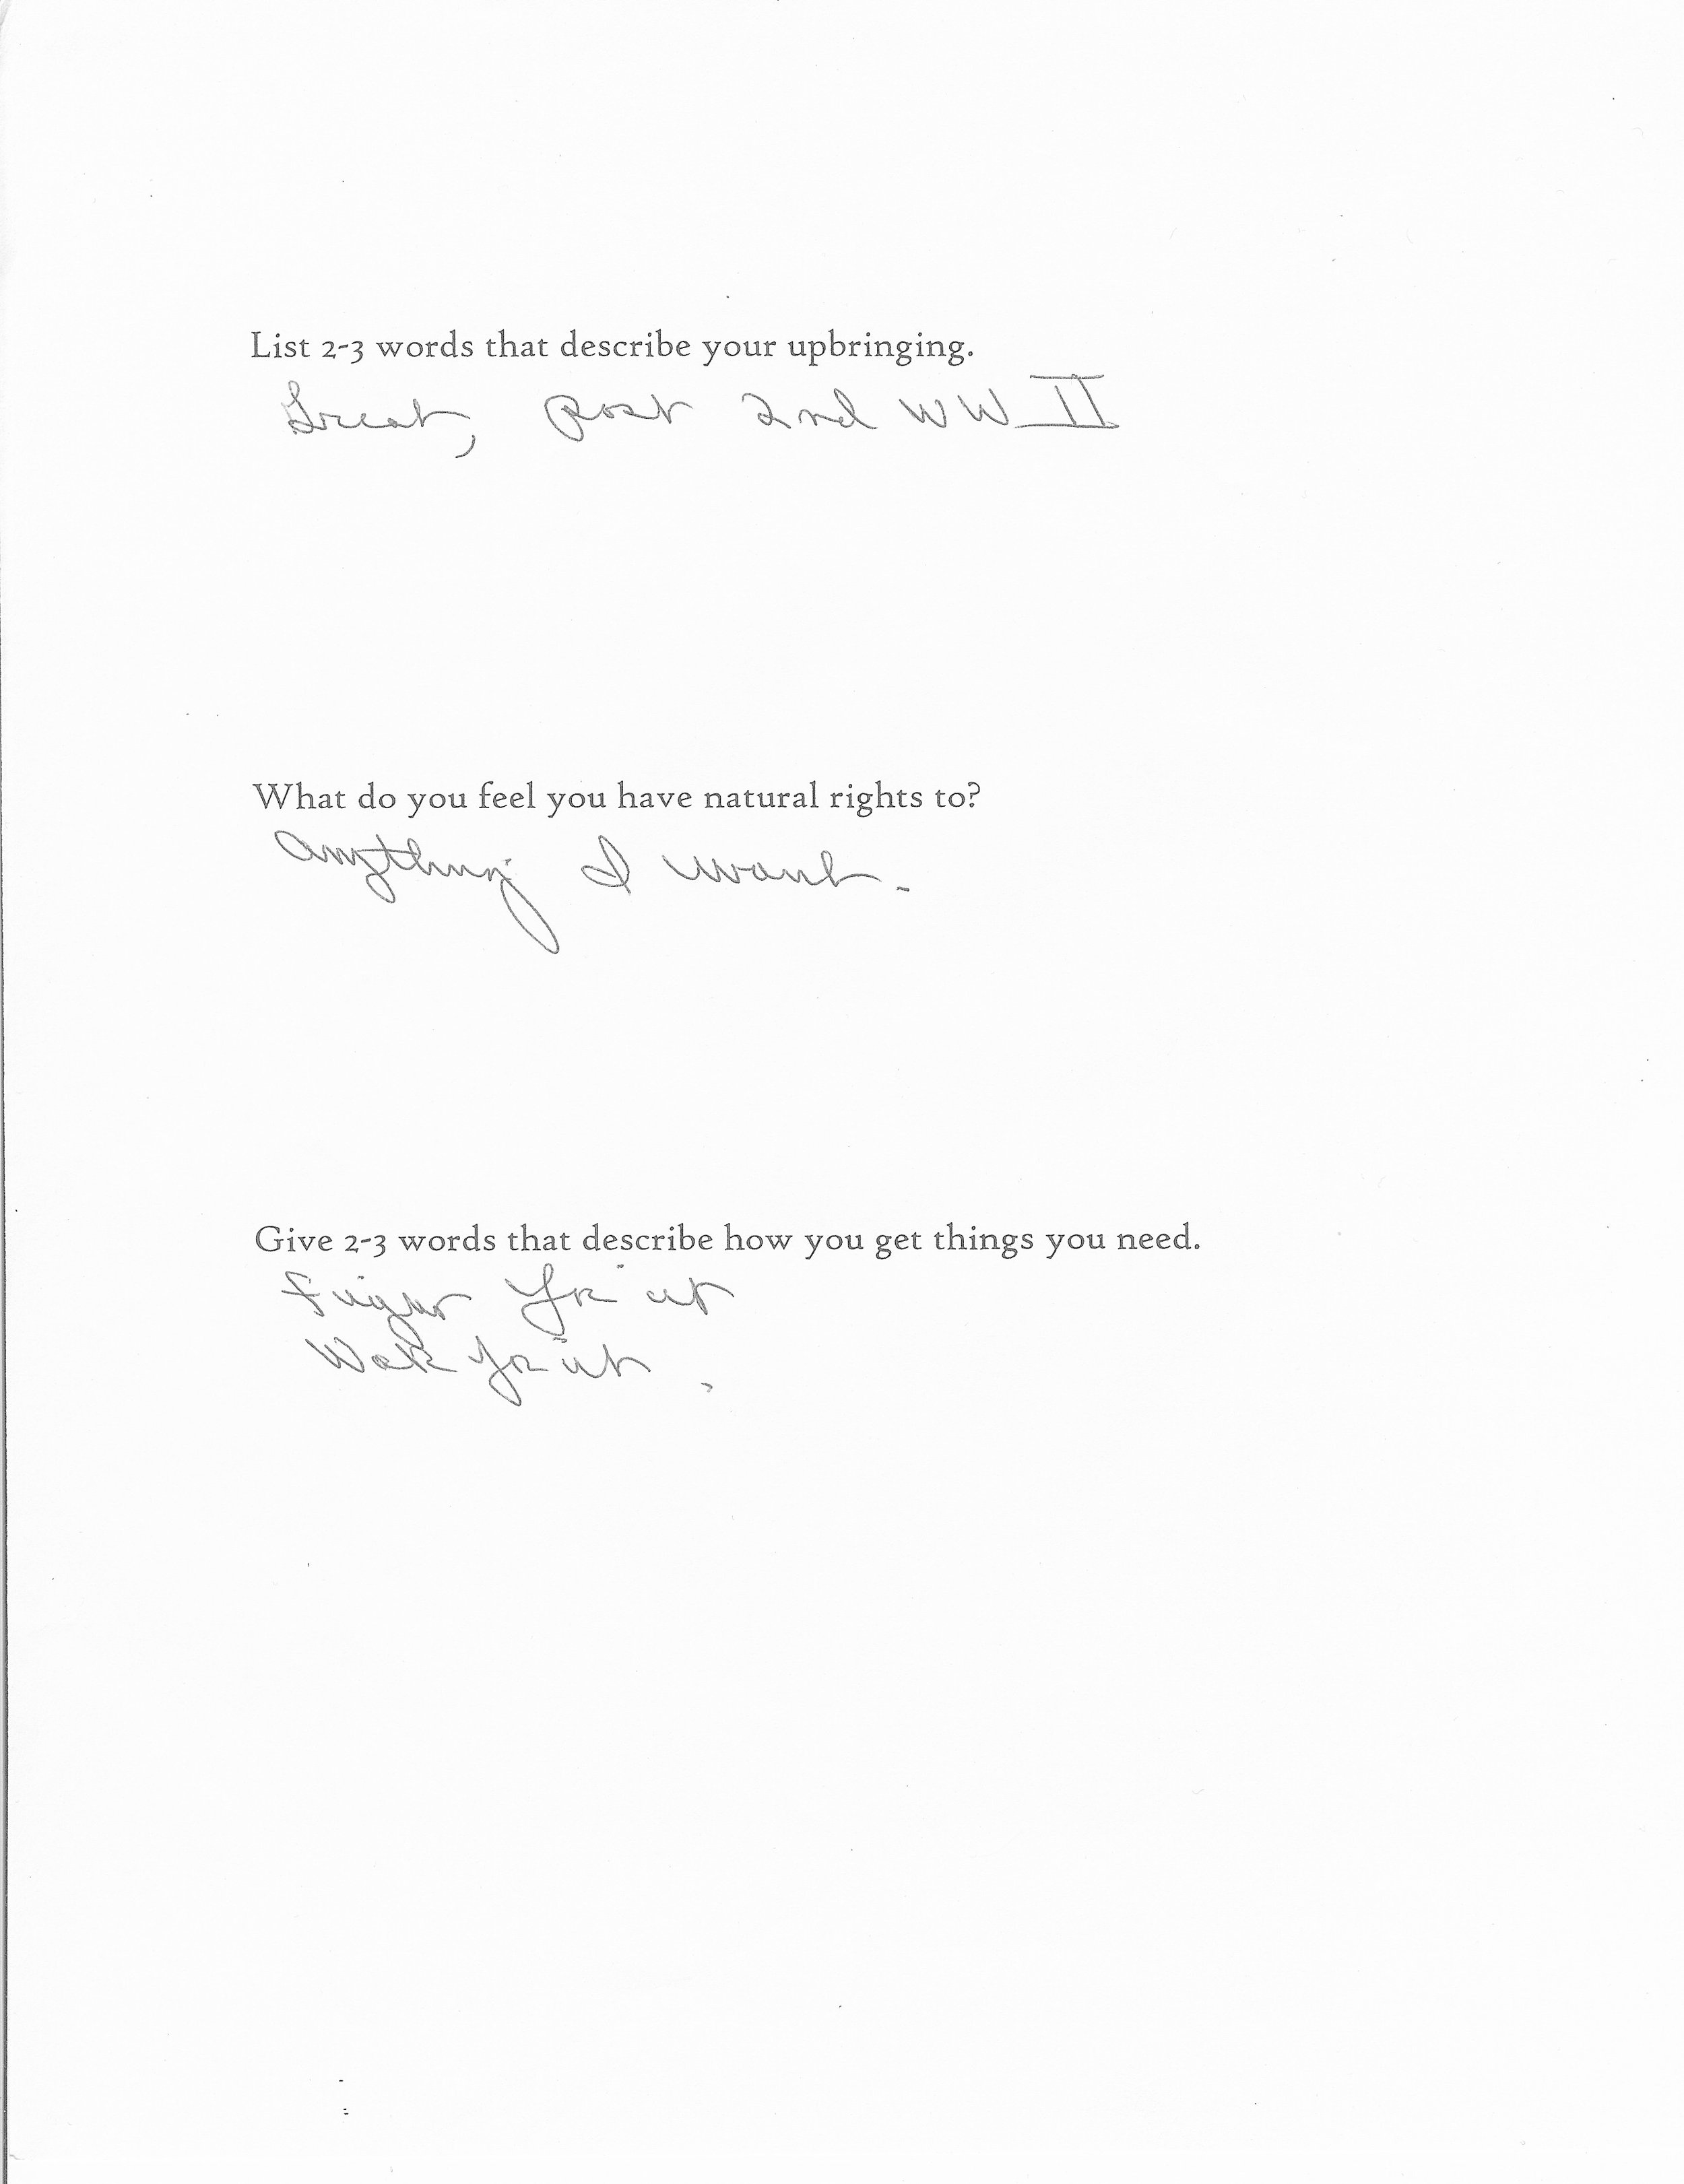 List 2-3 words that describe your upbringing.
Great, Post 2nd WW II
What do you feel you have natural rights to?
Anything I want.
Give 2-3 words that describe how you get things you need.
Fight for it
Work for it.